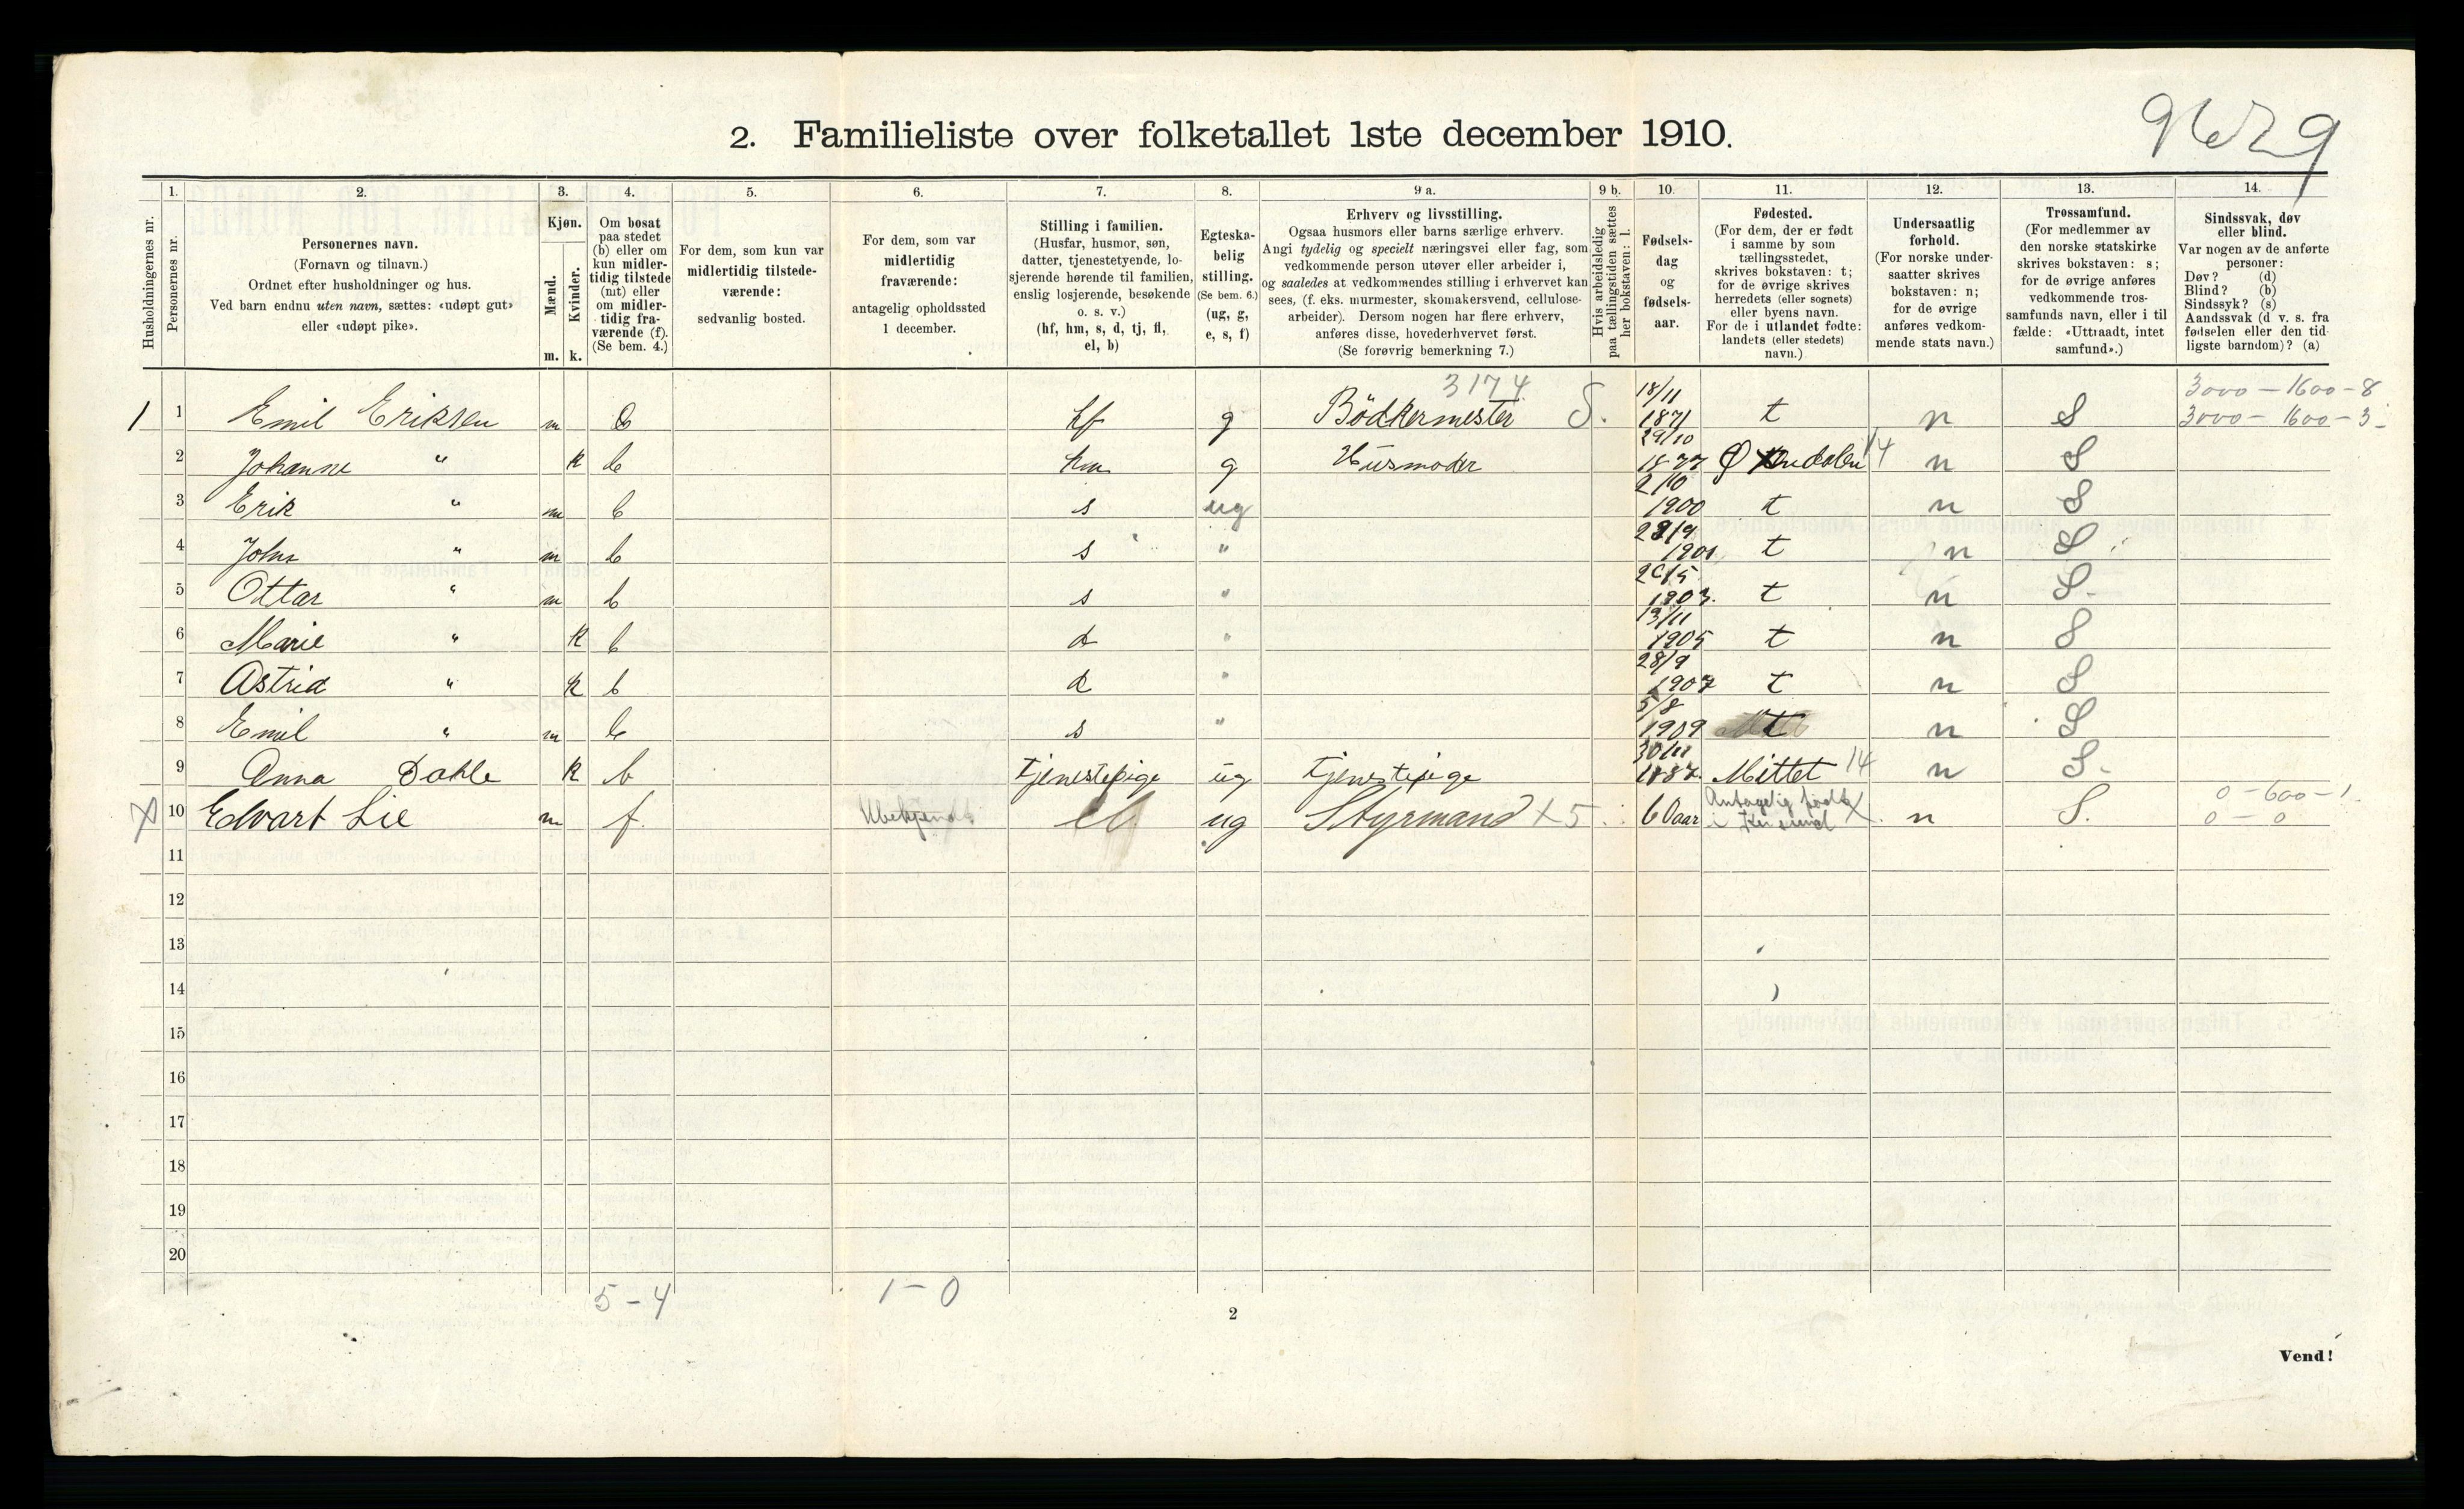 9629
2. Familieliste over folketallet 1ste december 1910.
Husholdningernes nr.
1.
Personernes nr.
2.
Personernes navn.
(Fornavn og tilnavn.)
Ordnet efter husholdninger og hus.
Ved barn endnu uten navn, sættes: «udøpt gut»
eller «udøpt pike».
3.
Kjøn.
Mænd.
Kvinder.
m. k.
4.
Om bosat
paa stedet
(b) eller om
kun midler-
tidig tilstede
(mt) eller
om midler-
tidig fra-
værende (f).
(Se bem. 4.)
5.
For dem, som kun var
midlertidig tilstede-
værende:
sedvanlig bosted.
6.
For dem, som var
midlertidig
fraværende:
antagelig opholdssted
1 december.
7.
Stilling i familien.
(Husfar, husmor, søn,
datter, tjenestetyende, lo-
sjerende hørende til familien,
enslig losjerende, besøkende
o. s. v.)
(hf, hm, s, d, tj, fl,
el, b)
8.
Egteska-
belig
stilling.
(Se bem. 6.)
(ug, g,
e, s, f)
9 a.
Erhverv og livsstilling.
Ogsaa husmors eller barns særlige erhverv.
Angi tydelig og specielt næringsvei eller fag, som
vedkommende person utøver eller arbeider i,
og saaledes at vedkommendes stilling i erhvervet kan
sees, (f. eks. murmester, skomakersvend, cellulose-
arbeider). Dersom nogen har flere erhverv,
anføres disse, hovederhvervet først.
(Se forøvrig bemerkning 7.)
9 b.
Hvis arbeidsledig
paa tællingstiden sættes
her bokstaven: l.
10.
Fødsels-
dag
og
fødsels-
aar.
11.
Fødested.
(For dem, der er født
i samme by som
tællingsstedet,
skrives bokstaven: t;
for de øvrige skrives
herredets (eller sognets)
eller byens navn.
For de i utlandet fødte:
landets (eller stedets)
navn.)
12.
Undersaatlig
forhold.
(For norske under-
saatter skrives
bokstaven: n;
for de øvrige
anføres vedkom-
mende stats navn.)
13.
Trossamfund.
(For medlemmer av
den norske statskirke
skrives bokstaven: s;
for de øvrige anføres
vedkommende tros-
samfunds navn, eller i til
fælde: «Uttraadt, intet
samfund».)
14.
Sindssvak, døv
eller blind.
Var nogen av de anførte
personer:
Døv? (d)
Blind? (b)
Sindssyk? (s)
Aandssvak (d v. s. fra
fødselen eller den tid-
ligste barndom)? (a)
1 1 Emil Eriksen m b hf g Bödkermester 3174 S. 18/11 1871 t n S 3000 - 1600 - 8
3000 - 1600 - 3
2 Johanne " k b hm g Husmoder 29/10 1877 14 n S
3 Erik " m b s ug 2/10 1900 t n S
4 John " m b s " 28/9 1901 t n S
5 Ottar " m b s " 20/5 1903. t n S.
6 Marie " k b d " 13/11 1905 t n S
7 Astrid " k b d " 28/9 1907 t n S
8 Emil " m b s " 5/8 1909 t n S
9 Anna Dahle k b tjenestepige ug tjenestepige 1887. Mittet 14 n S.
X 10 Edvart Lie m f. Ubekjendt el ug Styrmand X 5 60 aar Antagelig født i Kr.sund X n S. 0 - 600 - 1
0 - 0
11
12
13
14
15
16
17
18
19
20
5 - 4 1 - 0
2
Vend!